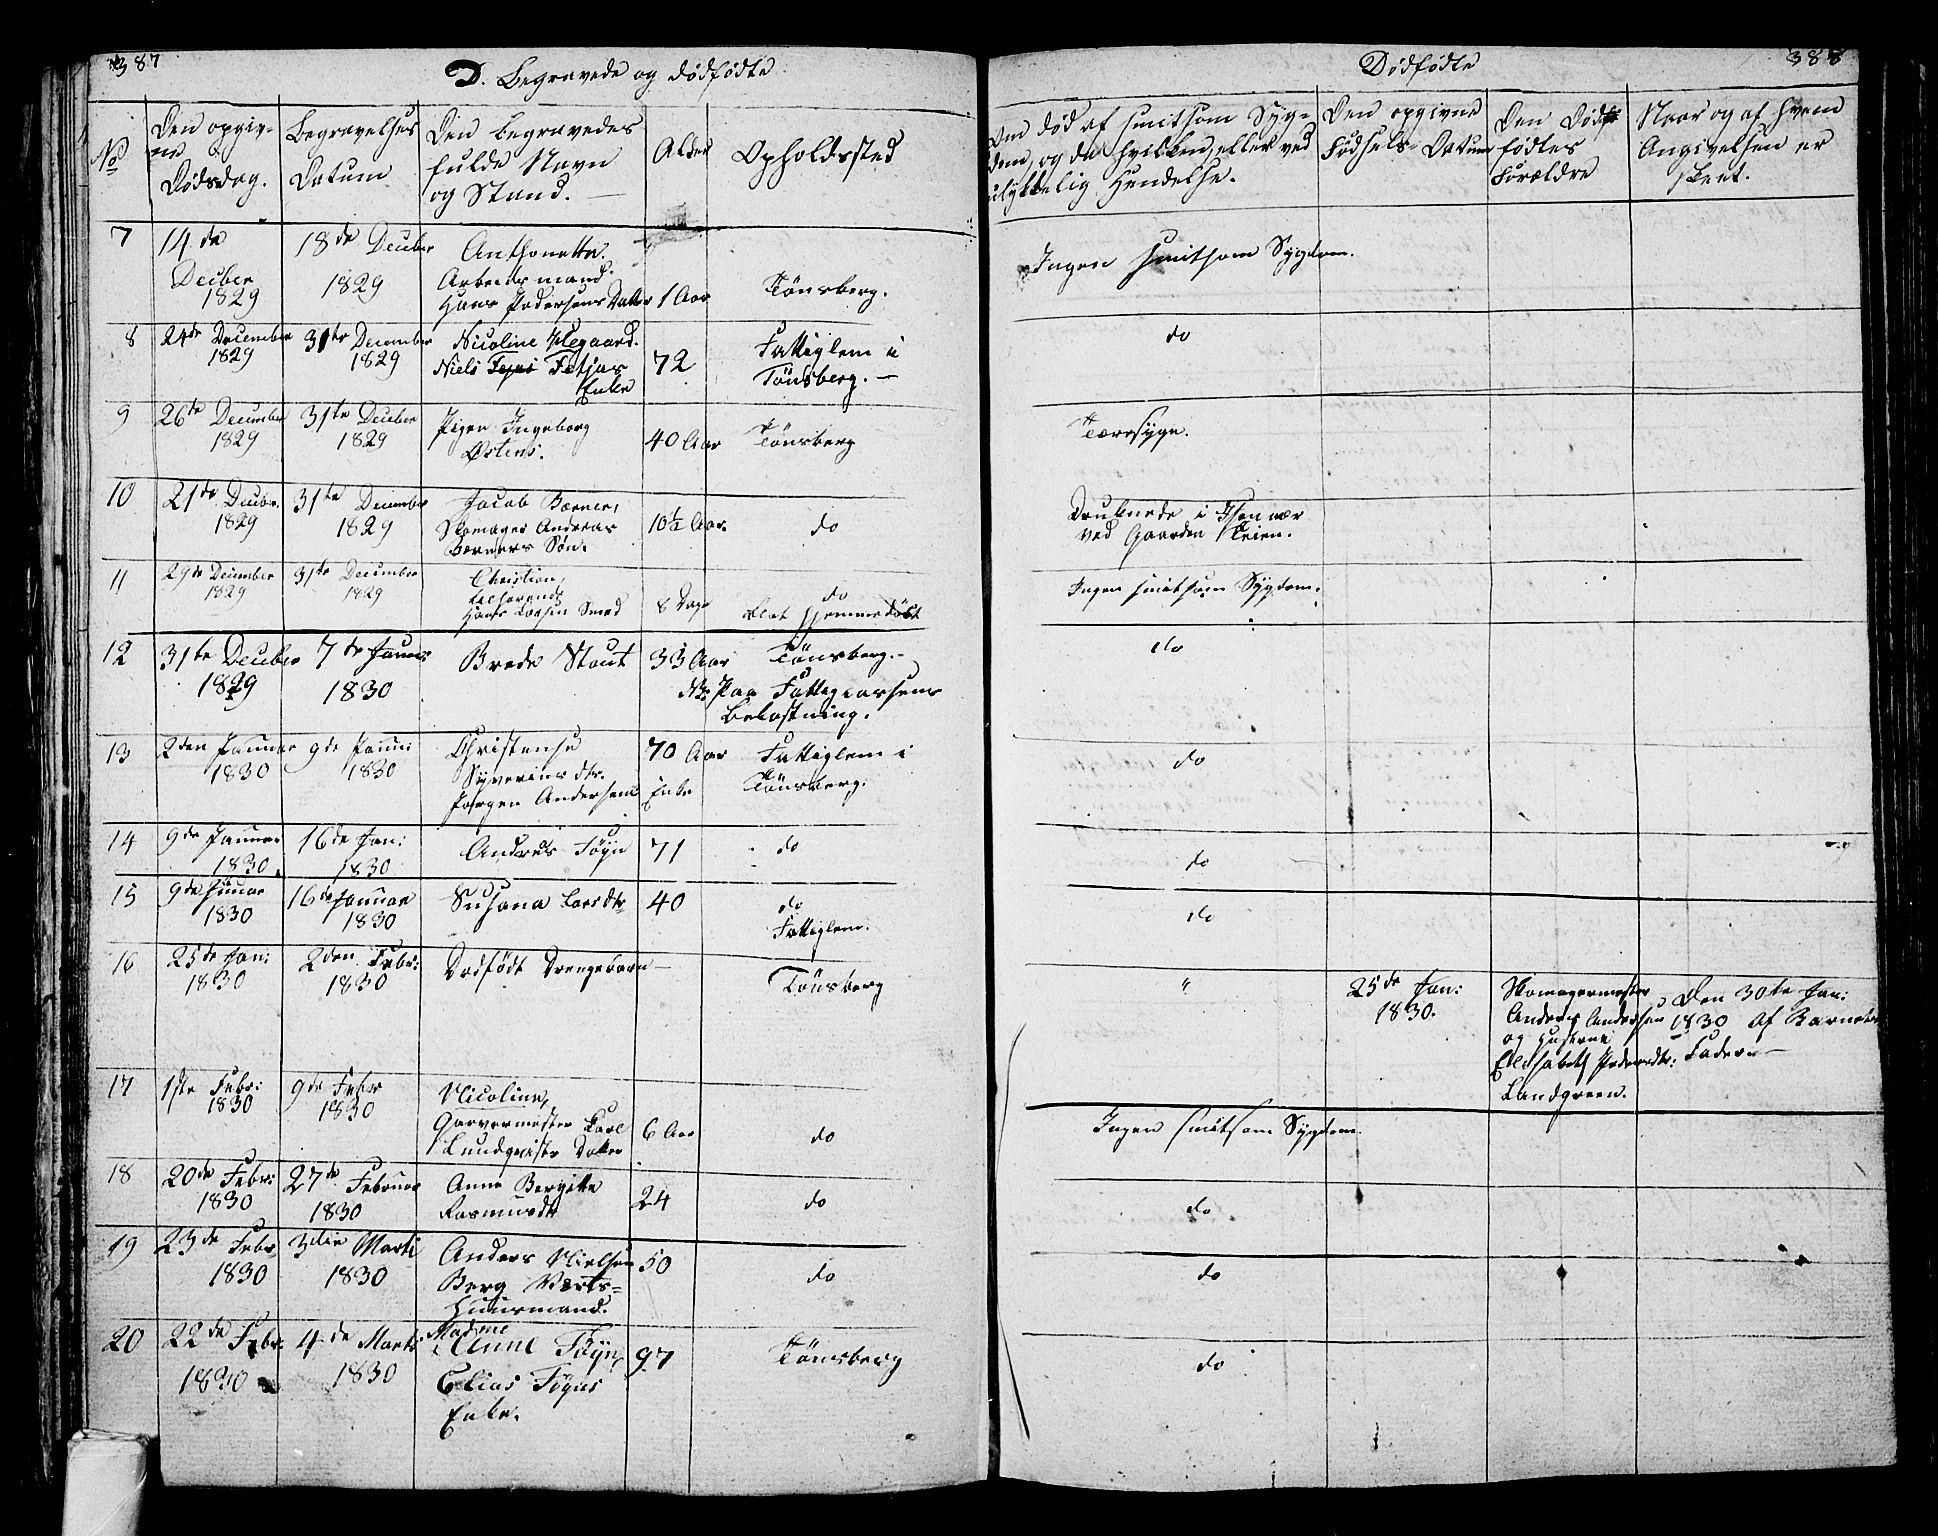 387
D. Begravede og dødfødte
No
Den opgiv-
ne
Dødsdag.
Begravelses
Datum
Den begravedes
fulde Navn
og Stand.
Alder
Opholdssted
7
14de
Decber
1829
18de Decber
1829
Anthonette.
Arbeidsmand
Hans Pedersens Datter
1 Aar
Tönsberg.
8
24de December
1829
31te December
1829
Nicoline
Niels
Enke
72
Fattiglem i
Tönsberg. —
9
26de December
1829
31te Decber
1829
Pigen Ingeborg
Østens.
40 Aar
Tönsberg
10
21de Decbr.
1829
31te December
1829
Jacob Bærner,
Skomager Andreas
Bærners Søn.
10½ Aar.
do
11
29de December
1829
31te December
1829
Christian,
Hans Larsen Smed
8 Dage
do
blot hjemmedöbt
12
31te Decber
1829
7de Januar
1830
Brede Stout
33 Aar
Tönsberg.-
NB. Paa Fattigcassens
Bekostning.
13
2den Januar
1830
9de Janu:
1830
Christense
Syverinsdtr.
Jørgen Andersens
70 Aar
Enke
Fattiglem i
Tönsberg.
14
9de Januar
1830.
16de Jan:
1830
Andreas Föyn
71
do
15
9de Januar
1830
16de Januar
1830
Susana Larsdtr
40
do
Fattiglem.
16
25de Jan:
1830
2den Febr:
1830
Dödfödt Drengebarn —
Tönsberg
17
1ste Febr:
1830
9de Febr
1830
Nicoline,
Garvermester Carl
Lundqvists Datter
6 Aar
do
18
20de Febr:
1830
27de Februar
1830
Anne Bergitte
Rasmusdtr
24
do
19
23de Febr
1830
3die Marti
1830
Anders Nielsen
Berg Værts-
huusmand.
50
do
20
22de Febr.
1830
4de Marts
1830
Madme
Anne Föyn,
Elias Föyns
Enke.
97
Tönsberg
Dødfødte
388
Om død af smitsom Syg-
dom, og da hvilken, eller ved
ulykkelig Hendelse.
Den opgivne
Fødsels Datum
Den Død-
fødtes
Forældre
Naar og af hvem
Angivelsen er
skeet.
Ingen smitsom Sygdom.
do
Tæresyge.
Druknede i
ved Gaarden Teien.
Ingen smitsom Sygdom.
do
do
do
do
"
25de Jan:
1830.
Skomagermester
Anders Andersen
og Hustrue
Elisabeth Pedersdtr:
Landgreen.
Den 30te Jan:
1830 af Barnets
Fader —
Ingen smitsom Sygdom.
do
do
do